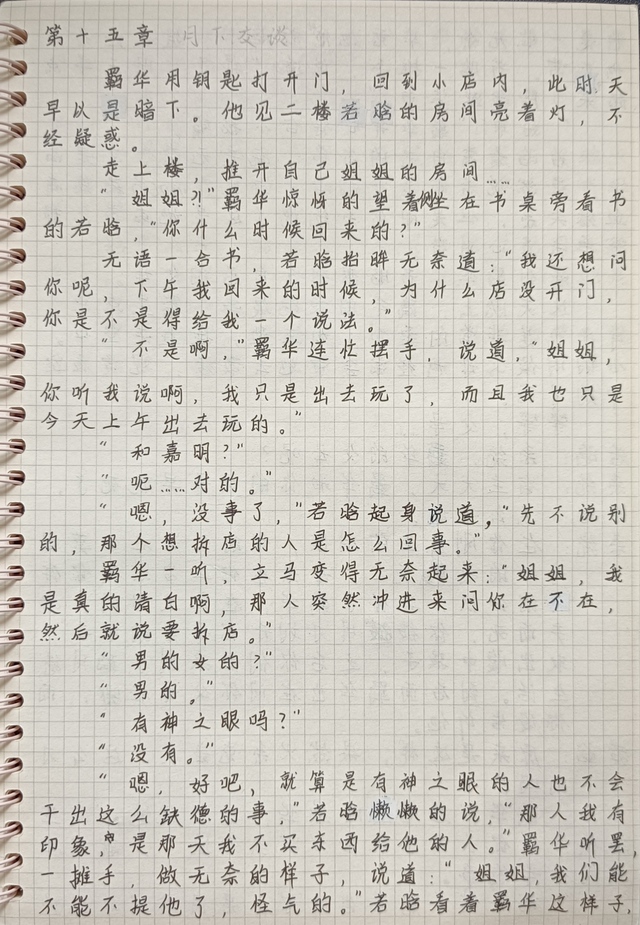 第十五章 月下交谈
羁华用钥匙打开门，回到小店内，此时天
早以是暗下。他见二楼若晗的房间亮着灯，不
经疑惑。
走上楼，推开自己姐姐的房间……
“姐姐？！”羁华惊怀的望着侧坐在书桌旁看书
的若晗，“你什么时候回来的？”
无语一合书，若晗抬眸无奈道：“我还想问
你呢，下午我回来的时候，为什么店没开门，
你是不是得给我一个说法。”
“不是啊，”羁华连忙摆手，说道，“姐姐，
你听我说啊，我只是出去玩了，而且我也只是
今天上午出去玩的。”
“和嘉明？”
“呃……对的。”
“嗯，没事了，”若晗起身说道，“先不说别
的，那个想拆店的人是怎么回事。”
羁华一听，立马变得无奈起来：“姐姐，我
是真的清白啊，那人突然冲进来问你在不在，
然后就说要拆店。”
“男的女的？”
“男的。”
“有神之眼吗？”
“没有。”
“嗯，好吧，就算是有神之眼的人也不会
干出这么缺德的事，”若晗懒懒的说，“那人我有
印象，是那天我不买东西给他的人。”羁华听罢，
一摊手，做无奈的样子，说道：“姐姐，我们能
不能不提他了，怪气的。”若晗看着羁华这样子，